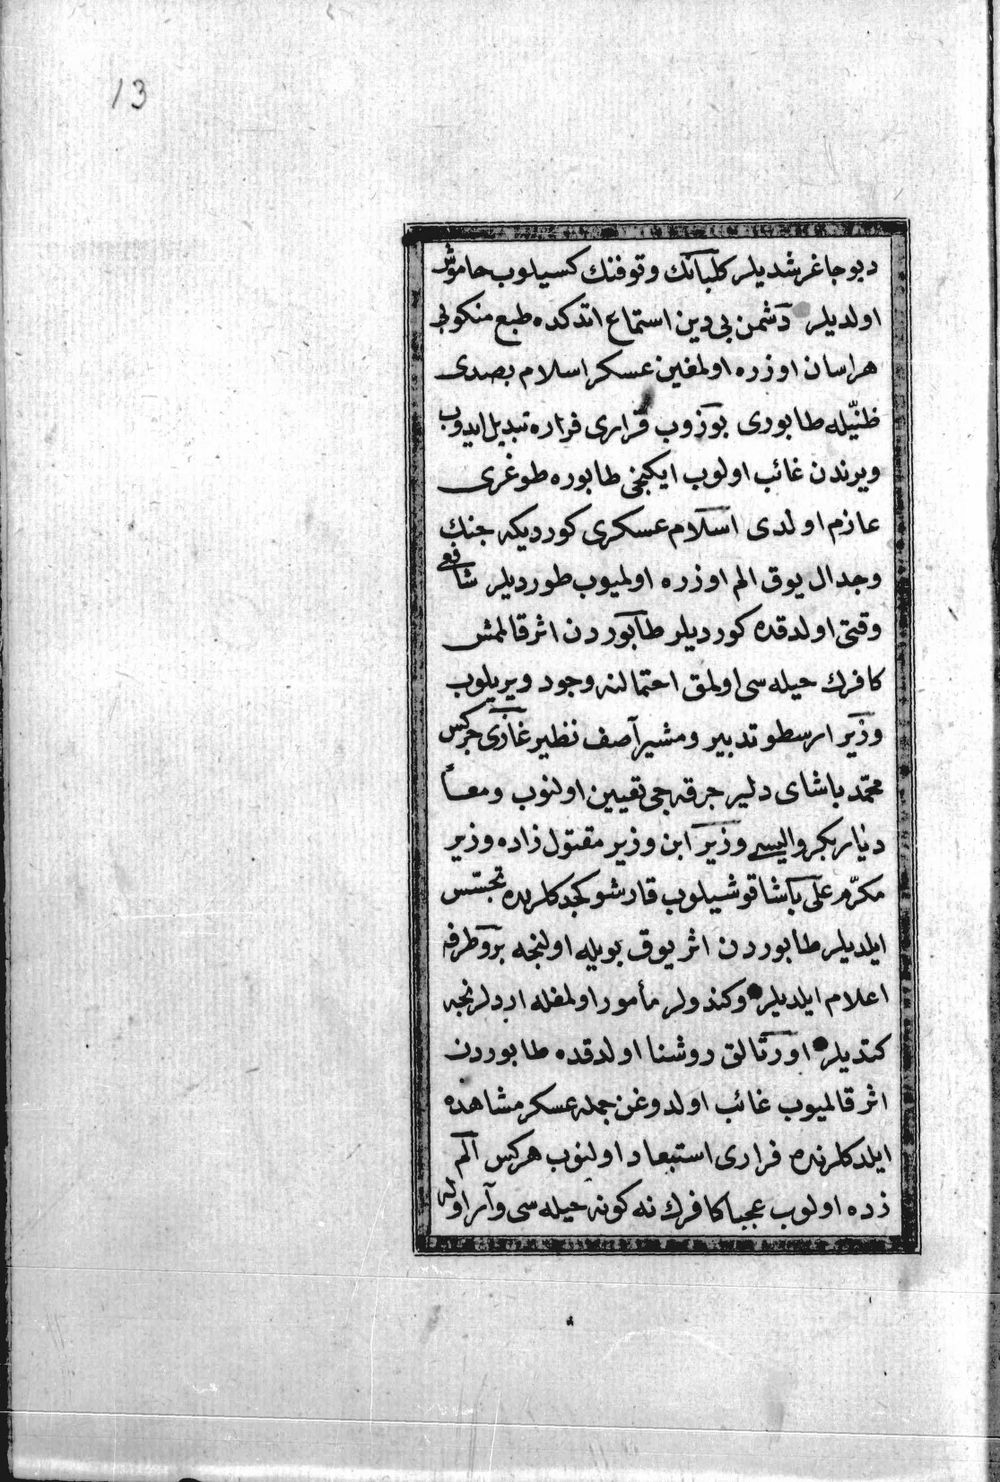 13
ديو جاغرشديلر كلبانك وتوفنك كسيلوب خاموش
اولديلر دشمن بى دين استماع اتدكده طبع منكوبى
هراسان اوزره اولمغين عسكر اسلام بصدى
ظنيّله طابورى بوزوب قرارى فراره تبديل ايدوب
ويرندن غائب اولوب ايكنجى طابوره طوغرى
عازم اولدى اسلام عسكرى كورديكه جنك
وجدال يوق الم اوزره اولميوب طورديلر شافعى
وقتى اولدقده كورديلر طابوردن اثر قالمش
كافرك حيله سى اولمق احتمالنه وجود ويريلوب
وزير ارسطو تدبير ومشير آصف نظير غازى جركس
محمّد باشاى دلير جرقه جى تعيين اولنوب ومعاً
ديار بكر واليسى وزير ابن وزير مقتول زاده وزير
مكرّم على باشا قوشيلوب قارشو كجدكلرنده تجسّس
ايلديلر طابوردن اثر يوق بويله اولنجه برو طرفه
اعلام ايلديلر وكندولر مأمور اولمغله اردلرنجه
كتديلر اورتالق روشنا اولدقده طابوردن
اثر قالميوب غائب اولدوغن جمله عسكر مشاهده
ايلدكلرنده فرارى استبعاد اولنوب هركس الم
زده اولوب عجبا كافرك نه كونه حيله سى وآر اوله